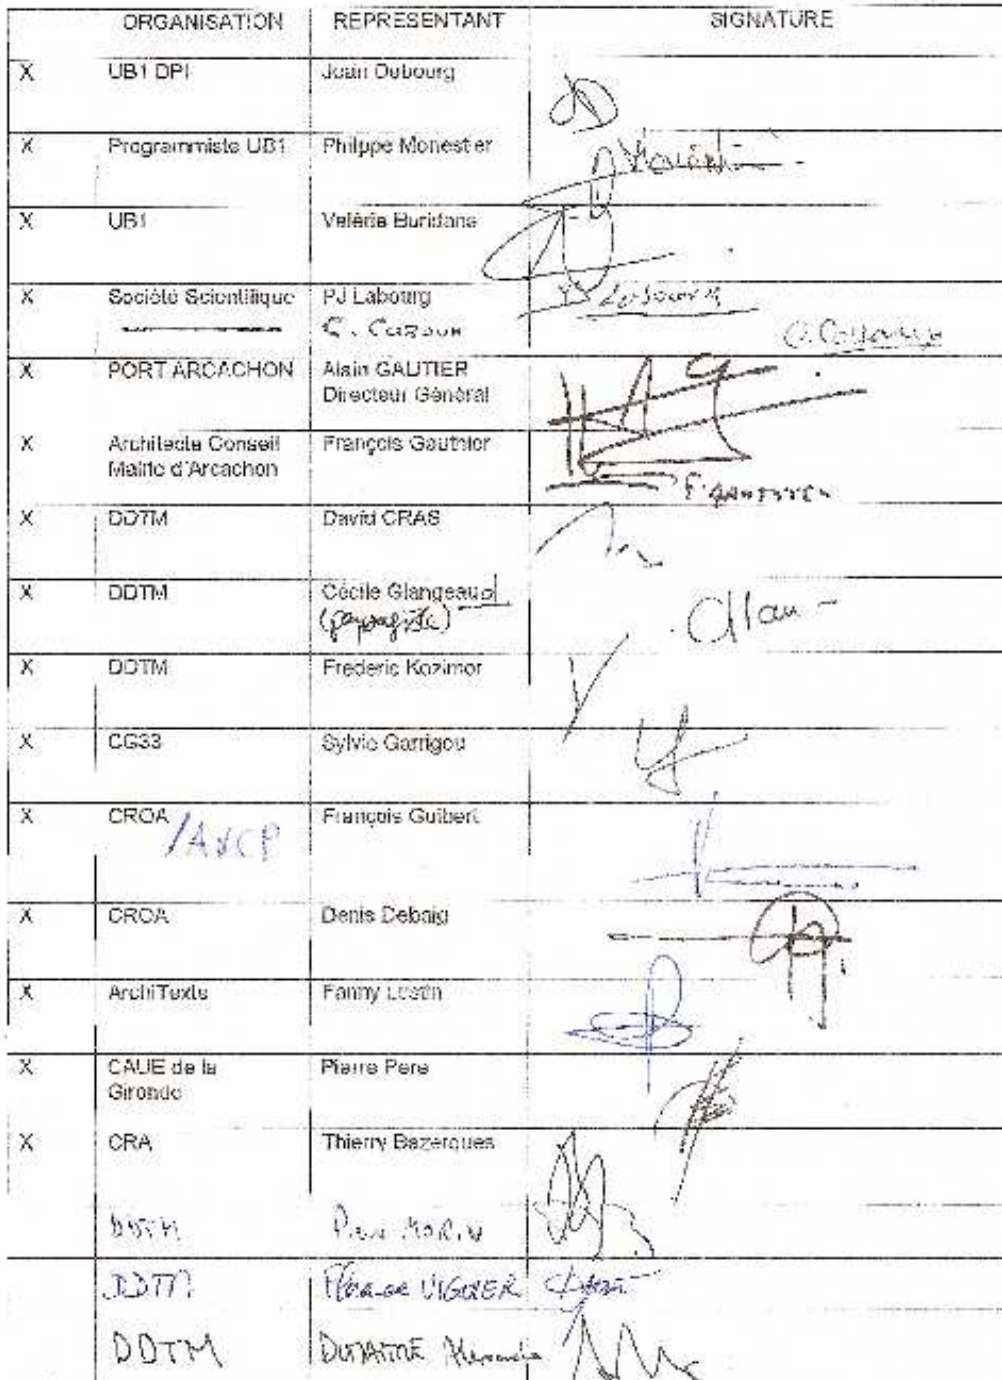 ORGANISATION REPRESENTANT SIGNATURE
X UB1 DPI Joan Dubourg
X Programmiste UB1 Philippe Monestier
X UB1 Valérie Buridans
X Société Scientifique PJ Labourg
C. Cazaux
X PORT ARCACHON Alain GAUTIER
Directeur Général
X Architecte Conseil François Gauthier
Mairie d'Arcachon
F. GAUTHIER
X DDTM David CRAS
X DDTM Cécile Glangeaud
(paysagiste)
X DDTM Frederic Kozimor
X CG33 Sylvie Garrigou
X CROA François Guibert
X CROA Denis Debaig
X ArchiTexte Fanny
X CAUE de la Pierre Pere
Gironde
X CRA Thierry Bazerques
DDTM MORIN
DDTM VIGUIER
DDTM Alexandre